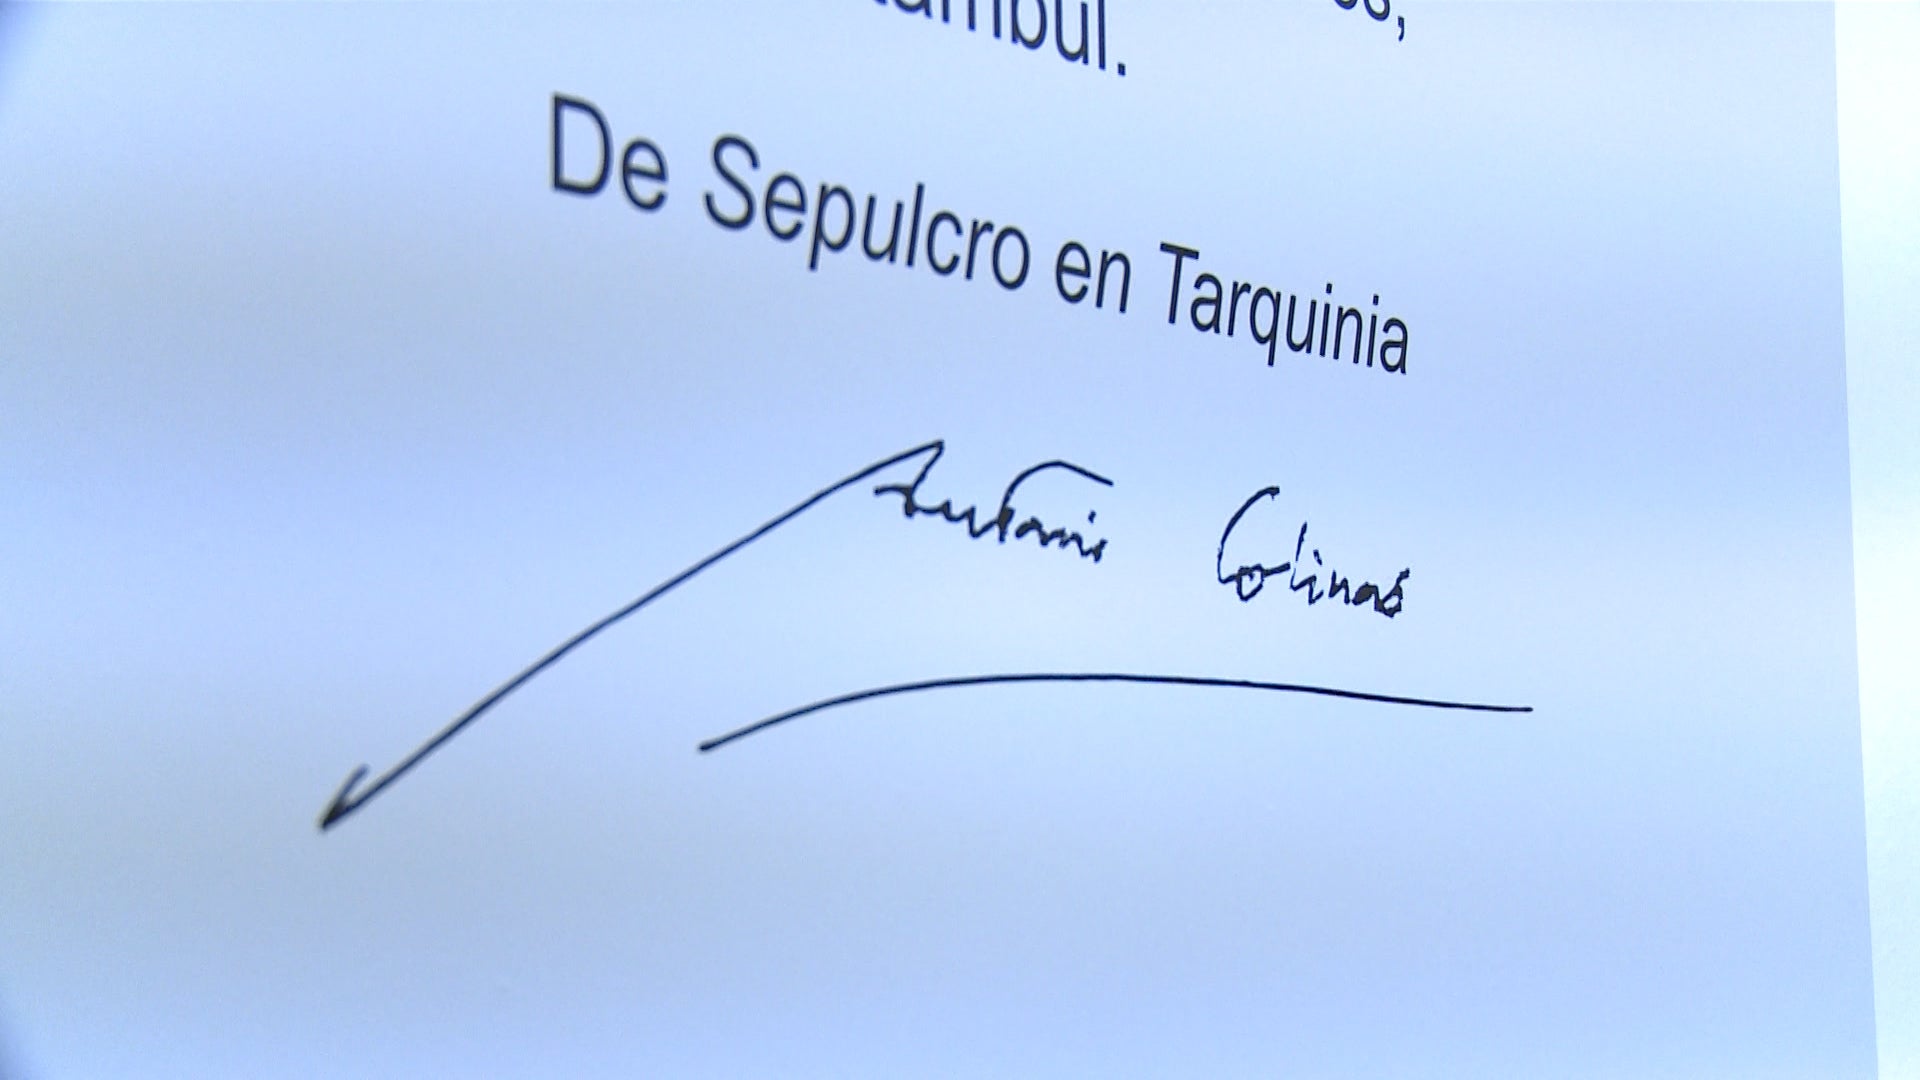 De Sepulcro en Tarquinia
Antonio Colinas